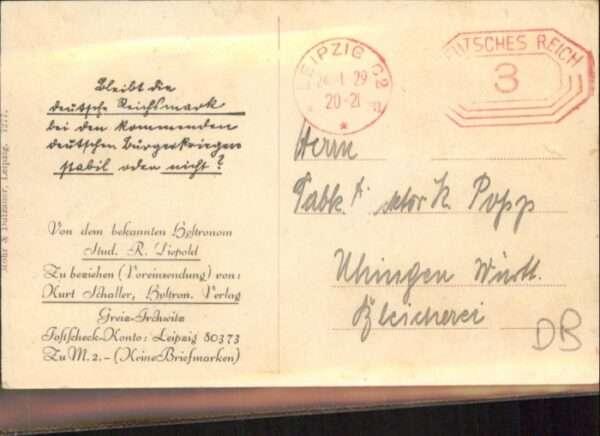 Bleibt die
deutsche Reichsmark
bei den kommenden
deutschen Bürgerkriegen
stabil oder nicht?
Von dem bekannten Astronom
Stud. R. Liepold
Zu beziehen (Voreinsendung) von:
Kurt Schaller, Verlag
Greiz-Irchwitz
Postscheck-Konto: Leipzig 80373
Zu M. 2.- (Keine Briefmarken)
Leipzig. 7277.
LEIPZIG C2
29
20-21
DEUTSCHES REICH
3
Herrn
K. Popp
Uhingen Württ.
Bleicherei
DB